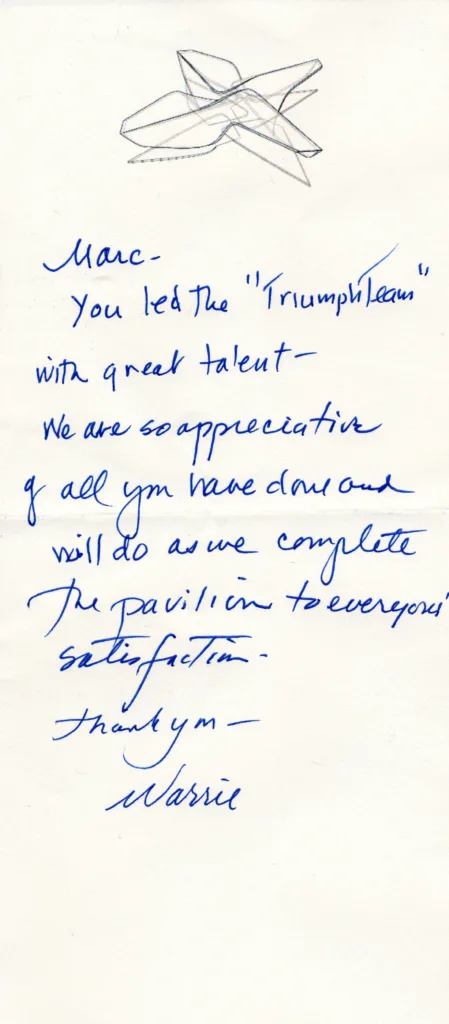 Marc-
You led the "Triumph Team"
with great talent-
We are so appreciative
of all you have done and
will do as we complete
The pavilion to everyones'
satisfaction-
thank you-
Warrie